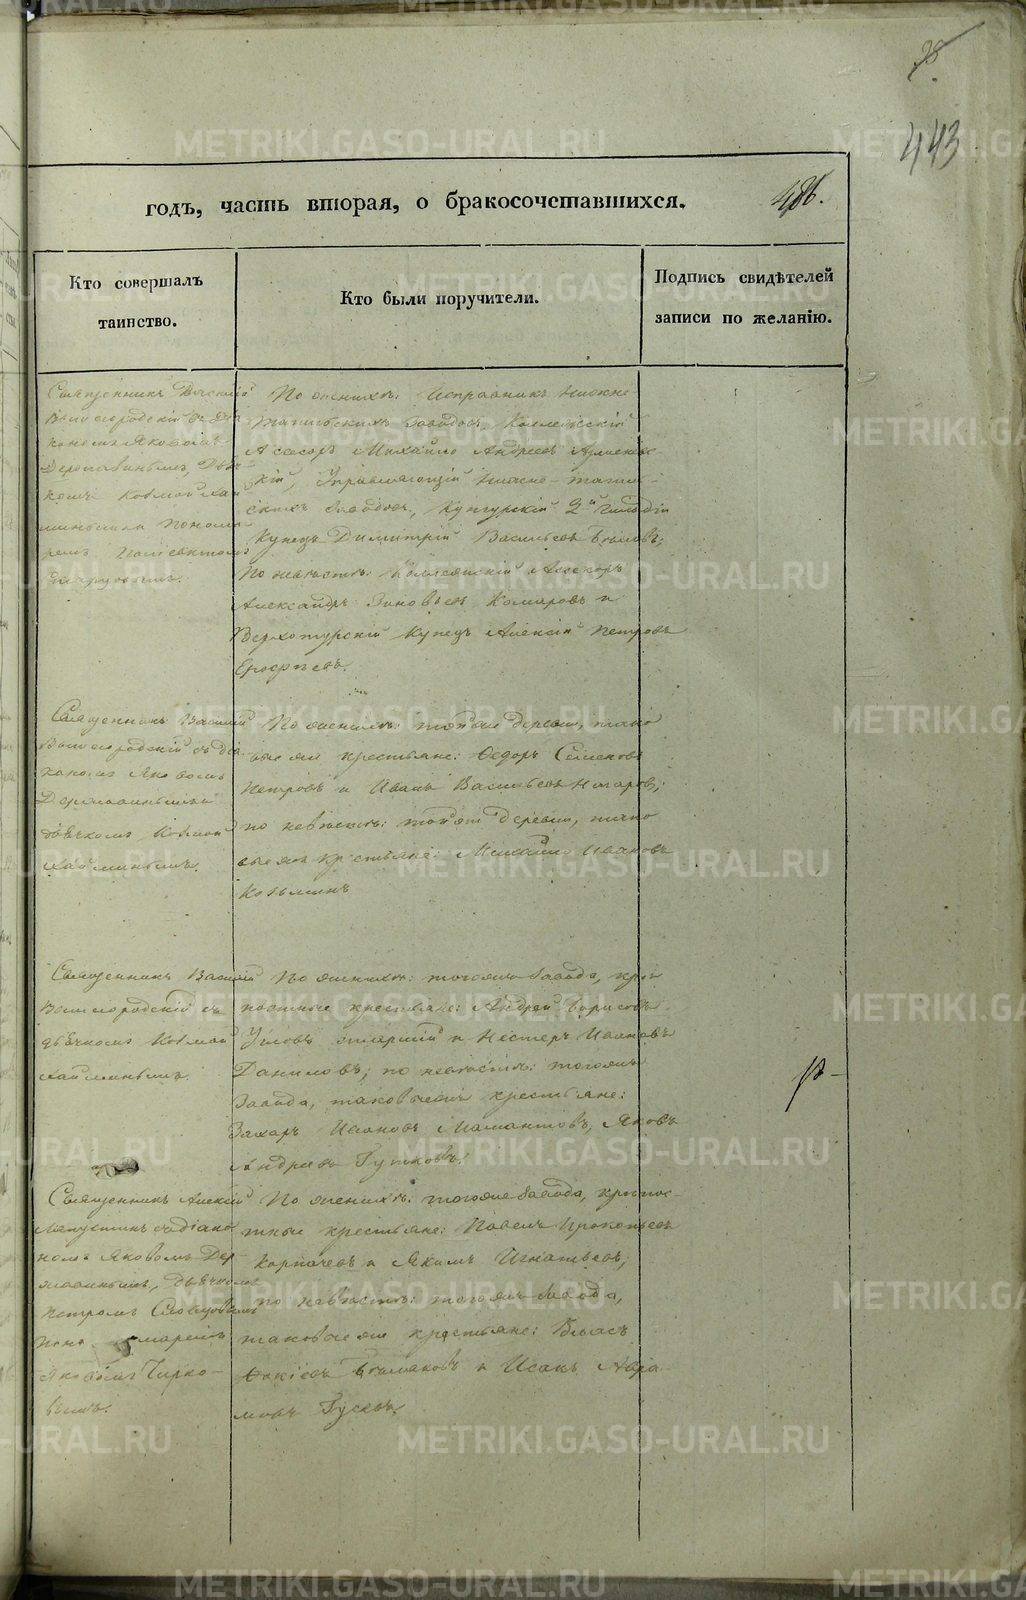 98
443
годъ, часть вторая, о бракосочетавшихся.
486.
Кто совершалъ
таинство.
Кто были поручители.
Подпись свидѣтелей
записи по желанію.
Священникъ Василій
діа
кономъ Яковомъ
Державинымъ, дья
комъ Козмой Хай
минымъ и понома
ремъ
По женихѣ: Исправникъ Нижне
тагильскихъ заводовъ, Коллежскій
Асесоръ Михайло Андреевъ
кій, Управляющій Нижне-тагиль
скихъ заводовъ, Кунгурскій 2й гильдіи
Купецъ Димитрій Васильевъ Бѣловъ;
По невѣстѣ: Коллежскій Асесоръ
Александръ Зиновьевъ Комаровъ и
Верхотурскій Купецъ Алексій Петровъ
Ерофѣевъ.
Священникъ Василій
съ діа
кономъ Яковомъ
Державинымъ и
дьячкомъ Козмой
Хайминымъ.
По женихѣ: той же деревни, тако
вые же крестьяне: Ѳедоръ Семеновъ
Петровъ и Иванъ Васильевъ
по невѣстѣ: той же деревни, тако
вые же крестьяне: Михайло Ивановъ
Козьминъ
Священникъ Василій
съ
дьячкомъ Козмой
Хайминымъ.
По женихѣ: того же завода, крѣ
постные крестьяне: Андрей Борисовъ
Угловъ старшій и Нестеръ Ивановъ
Даниловъ; по невѣстѣ: того же
завода, таковые же крестьяне:
Захаръ Ивановъ Мамантовъ, Яковъ
Андреевъ
Священникъ Алексій
съ діако
номъ Яковомъ Дер
жавинымъ, дьячкомъ
Петромъ Словцовымъ
поно маремъ
Яковомъ Чирко
вымъ.
По женихѣ: того же завода, крѣпос-
тные крестьяне: Павелъ Прокопьевъ
Карпачевъ и Якимъ Игнатьевъ;
по невѣстѣ: того же завода,
таковые же крестьяне: Власъ
Ѳокіевъ и Исакъ Авра
мовъ Гусевъ.
METRIKI.GASO-URAL.RU